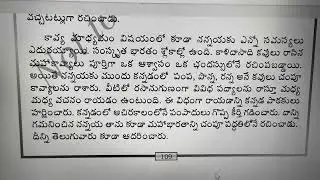 వెచ్చటట్లుగా రచించాడు.
కావ్య మాధ్యమం విషయంలో కూడా నన్నయకు ఎన్నో సమస్యలు
ఎదురయ్యాయి. సంస్కృత భారతం శ్లోకాల్లో ఉంది. కాళిదాసాది కవులు రాసిన
మహాకావ్యాలు పూర్తిగా ఒక ఆశ్వాసం ఒక ఛందస్సులోనే రచింపబడ్డాయి.
అయితే నన్నయకు ముందు కన్నడంలో పంప, పొన్న, రన్న అనే కవులు చంపూ
కావ్యాలను రాశారు. వీటిలో రసానుగుణంగా వివిధ పద్యాలను రాస్తూ మధ్య
మధ్య వచనం రాయడం ఉంటుంది. ఈ విధంగా రాయడాన్ని కన్నడ పాఠకులు
హర్షించారు. కన్నడంలో అచిరకాలంలోనే పంపాదులు గొప్ప కీర్తి గడించారు. దాన్ని
గమనించిన నన్నయ తాను కూడా మహాభారతాన్ని చంపూ పద్ధతిలోనే రచించాడు.
దీన్ని తెలుగువారు కూడా ఆదరించారు.
109